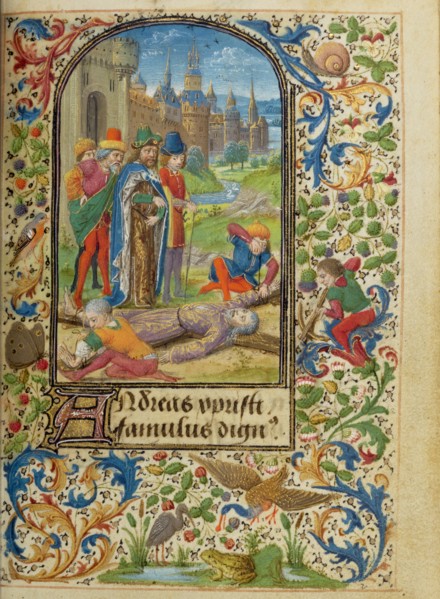 ANdreas xpristi
famulus dignꝰ